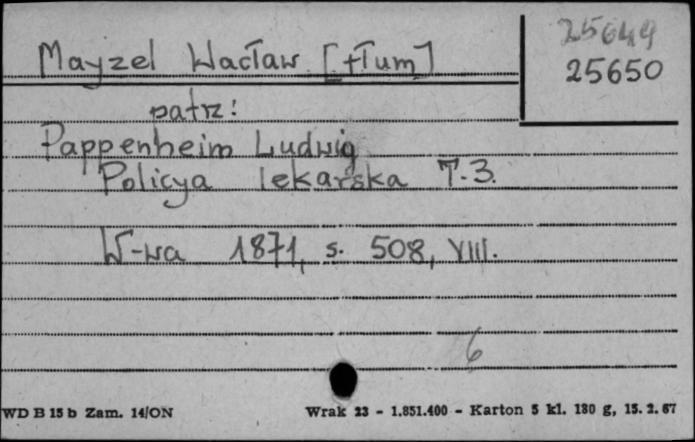 25649
Mayzel Wacław [tłum]
25650
patrz:
Pappenheim Ludwig
Policya lekarska T.3.
W-wa 1871, s. 508, VIII.
6
WD B 15 b Zam. 14/ON Wrak 23 - 1.851.400 - Karton 5 kl. 180 g, 15. 2. 67